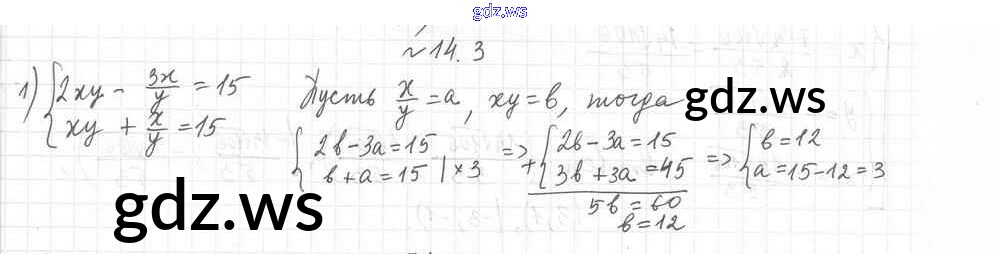 gdz.ws
№ 14.3
1) {2xy - 3x/y = 15
{xy + x/y = 15
Пусть x/y = a, xy = b, тогда
gdz.ws
{2b - 3a = 15
{b + a = 15 | × 3
=> + {2b - 3a = 15
{3b + 3a = 45
5b = 60
b = 12
=> {b = 12
{a = 15 - 12 = 3
gdz.ws